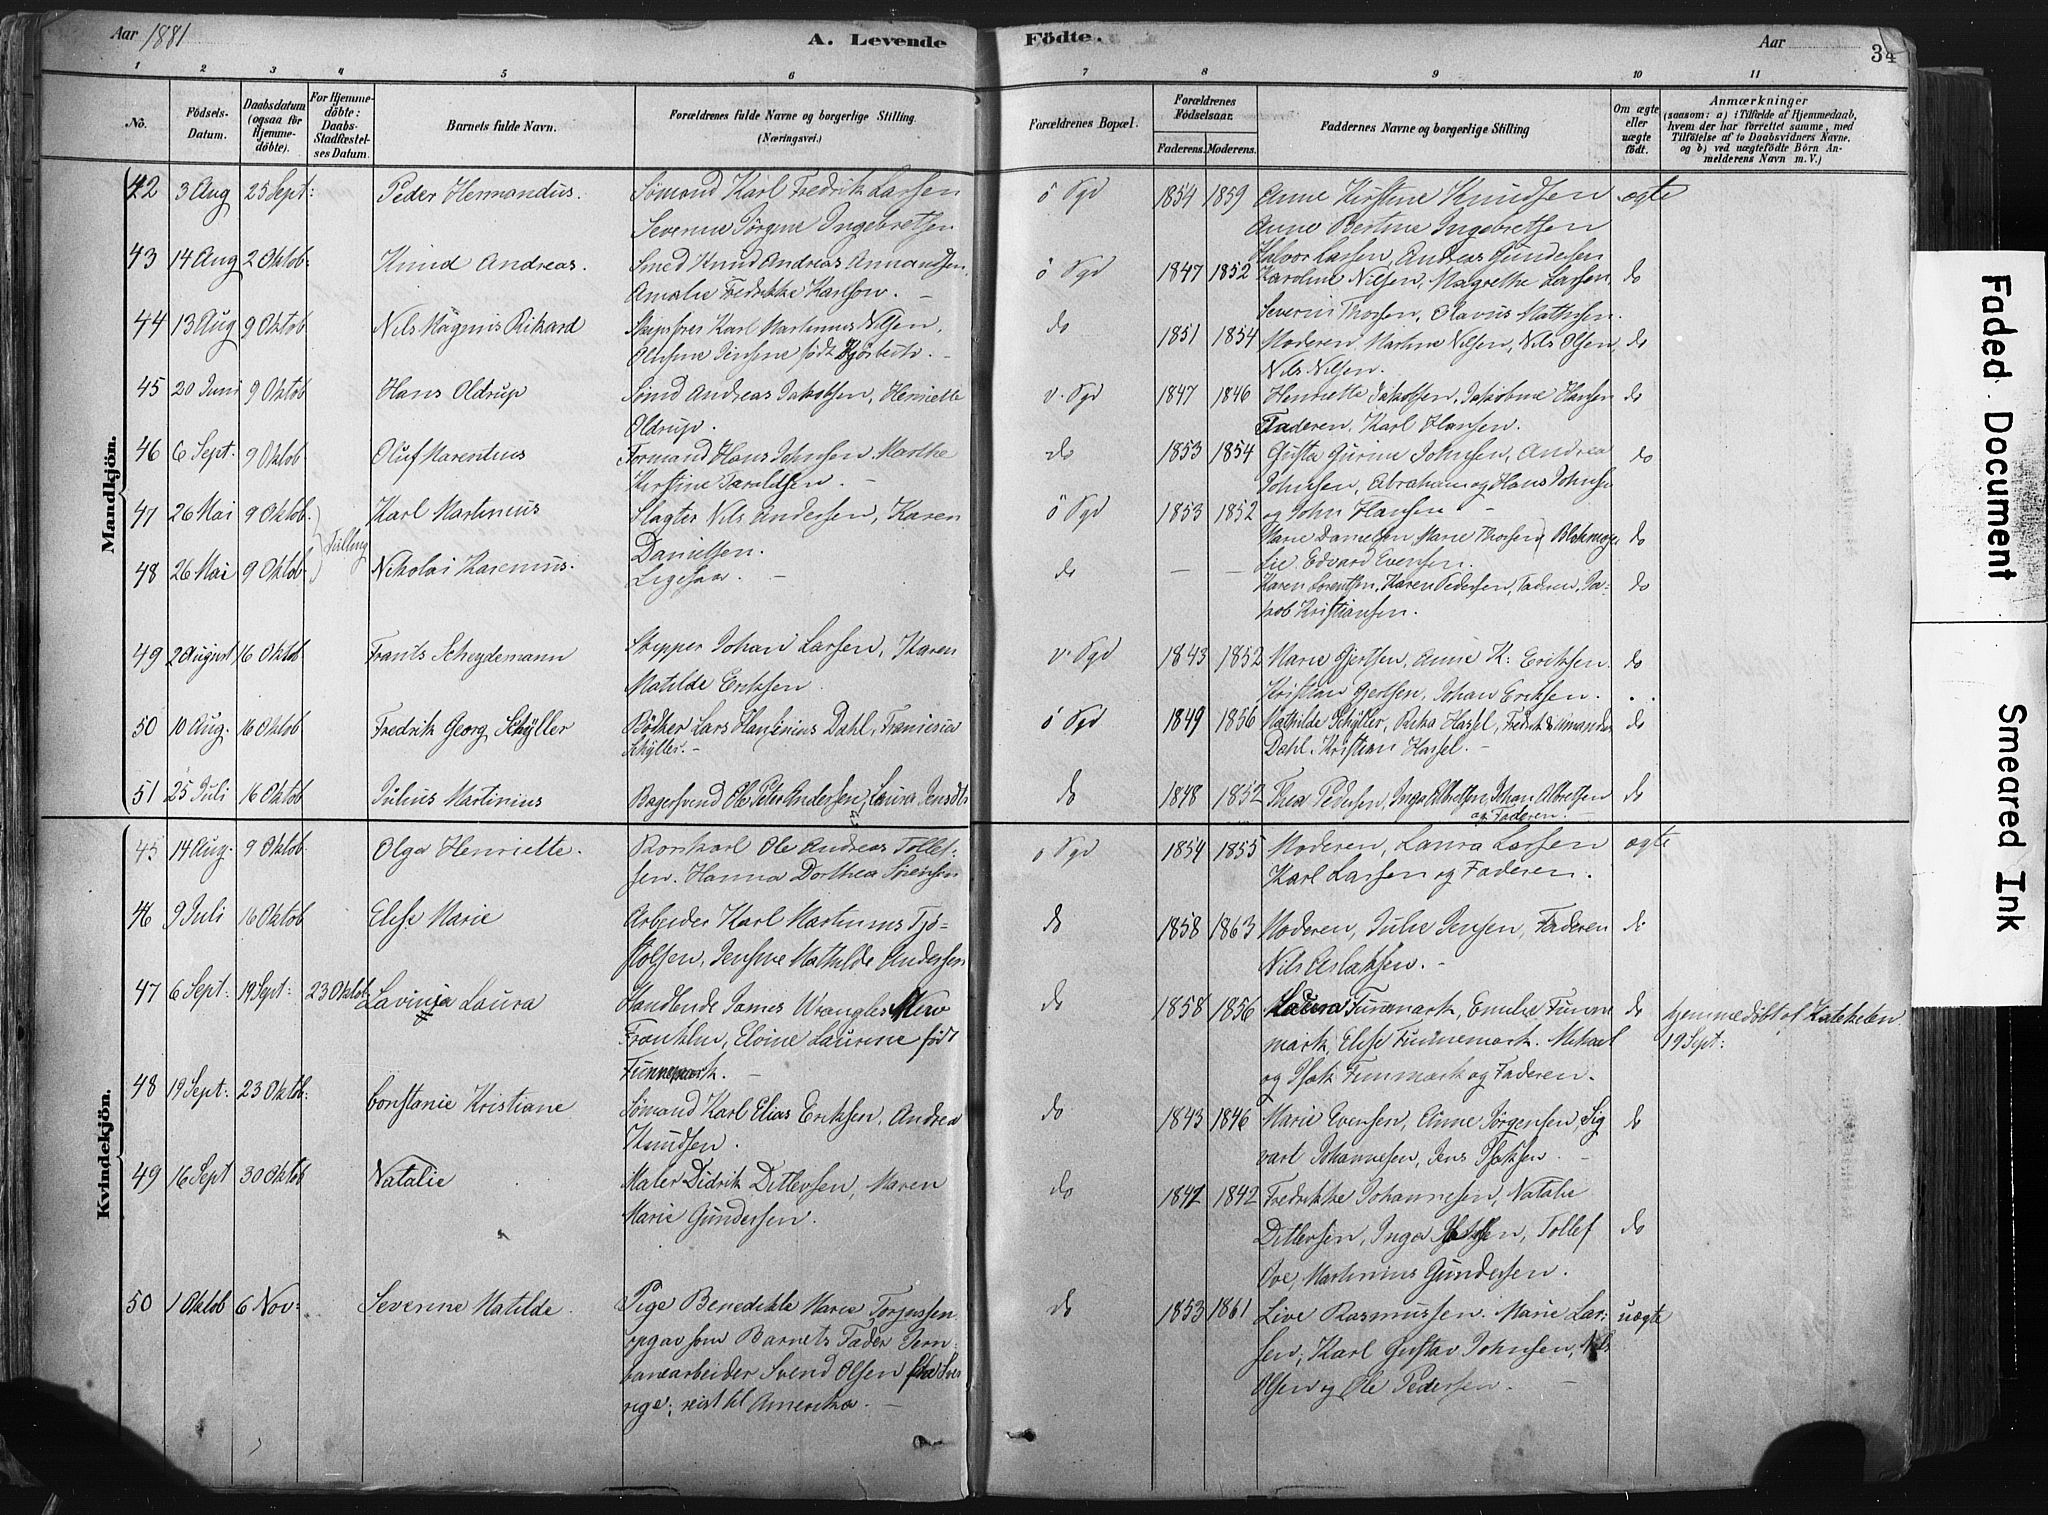 Aar 1881
A. Levende Födte.
Aar
34
1 2 3 4 5 6 7 8 9 10 11
No.
Födsels-Datum.
Daabsdatum (ogsaa för Hjemme-döbte).
For Hjemme-döbte: Daabs-Stadfæstel-ses Datum.
Barnets fulde Navn.
Forældrenes fulde Navne og borgerlige Stilling. (Næringsvei.)
Forældrenes Bopæl.
Forældrenes Födselsaar.
Faderens. Moderens.
Faddernes Navne og borgerlige Stilling
Om ægte eller uægte födt.
Anmærkninger
(saasom: a) i Tilfælde af Hjemmedaab, hvem der har forrettet samme, med Tilföielse af to Daabsvidners Navne, og b) ved uægtefödte Börn An-melderens Navn m. V.)
Mandkjön.
42 3 Aug 25 Sept: Peder Hermandus. Sömand Karl Fredrik Larsen ö Sgd 1854 1859 Anne Kirstine Knudsen ægte
Severine Jörgine Ingebretsen Anne Bertine Ingebretsen
Halvor Larsen, Andreas Gundersen
43 14 Aug 2 Oktob: Knud Andreas. Smed Knud Andreas Amandsen, ö Sgd 1847 1852 Karoline Nilsen, Magrethe Larsen do
Amalie Fredrikke Karlson. — Severin Thorsen, Olavus Mathisen.
44 13 Aug 9 Oktob Nils Magnus Rikard Skipsfrer Karl Martinius Nilsen, do 1851 1854 Moderen Martine Nilsen, Nils Olsen, do
Olufine Jensine födt — Nils Nilsen.
45 20 Juni 9 Oktob Hans Oldrup Sömd Andreas Jakobsen, Henriette v. Sgd 1847 1846 Henriette Jakobsen, Jakobine Hansen do
Oldrup. Faderen, Karl Hansen.
46 6 Sept. 9 Oktob Oluf Marentius Formand Hans Johnsen, Marthe do 1853 1854 Gusta Gurine Johnsen, Andrea do
Kirstine Taraldsen. — Johnsen, Abraham og Hans Johnsen
47 26 Mai 9 Oktob. Tvilling Karl Martinius Slagter Nils Andersen, Karen ö Sgd 1853 1852 og John Hansen —
Danielsen. Marie Danielsen, Marie Thorsen, do
48 26 Mai 9 Oktob Nikolai Karenius. Ligesaa. — do — — Lie, Edvard Evensen.
Karen Sörentsen, Karen Pedersen, Faderen, Ja- do
kob Kristiansen.
49 2 August 16 Oktob Frants Scheydemann Skipper Johan Larsen, Karen v. Sgd 1843 1852 Marie Gjertsen, Anne K: Eriksen do
Matilde Eriksen. Kristian Gjertsen, Johan Eriksen.
50 10 Aug. 16 Oktob Fredrik Georg Schyller Bödker Lars Dahl, ö Sgd 1849 1856 Mathilde Schyller, Rika Hassel, Fredrik do
Schyller. — Dahl, Kristian Hassel. —
51 25 Juli 16 Oktob Julius Martinius Bagersvend Ole Peter Andersen, Laura Jensdtr do 1848 1852 Thea Pedersen, Inga Albretsen, Johan Albretsen do
og Faderen. —
Kvindekjön.
45 14 Aug. 9 Oktob Olga Henriette. Ole Andreas Tollef- ö Sgd 1854 1855 Moderen, Laura Larsen ægte
sen. Hanna Dorthea Sörensen Karl Larsen og Faderen.
46 9 Juli 16 Oktob Elise Marie Arbeider Karl Martinius Tjö- do 1858 1863 Moderen, Julie Jensen, Faderen do
stolsen, Jensine Mathilde Andersen Nils Aslaksen. —
47 6 Sept. 19 Sept: 23 Oktob Lavinia Laura Handlende James Wrangles New do 1858 1856 Laura Funmark, Emelie Funne do hjemmedöbt af Kateketen
Franklin, Elvine Laurine födt mark, Elise Funnemark. Mikael 19 Sept:
Funnemark. — og Isak Funmark og Faderen.
48 19 Sept. 23 Oktob: Constanse Kristiane Sömand Karl Elias Eriksen, Andrea do 1843 1846 Marie Evensen, Anne Jörgensen, Sig do
Knudsen. vart Johannesen, Jens Isaksen. —
49 16 Sept 30 Oktob Natalie Maler Didrik Ditlevsen, Maren do 1842 1842 Fredrikke Johannesen, Natalie
Marie Gundersen. Ditlevsen, Inga, Tollef do
Ove, Martinius Gundersen.
50 1 Oktob 6 Nov: Severine Matilde. Pige Benedikte Marie Torjussen do 1853 1861 Live Rasmussen. Marie Lar: uægte
opgav som Barnets Fader Jern- sen, Karl Gustav Johnsen, Nils
banearbeider Svend Olsen fra Sve Olsen og Ole Pedersen. —
rige; reist til Amerika. —
Faded Document
Smeared Ink